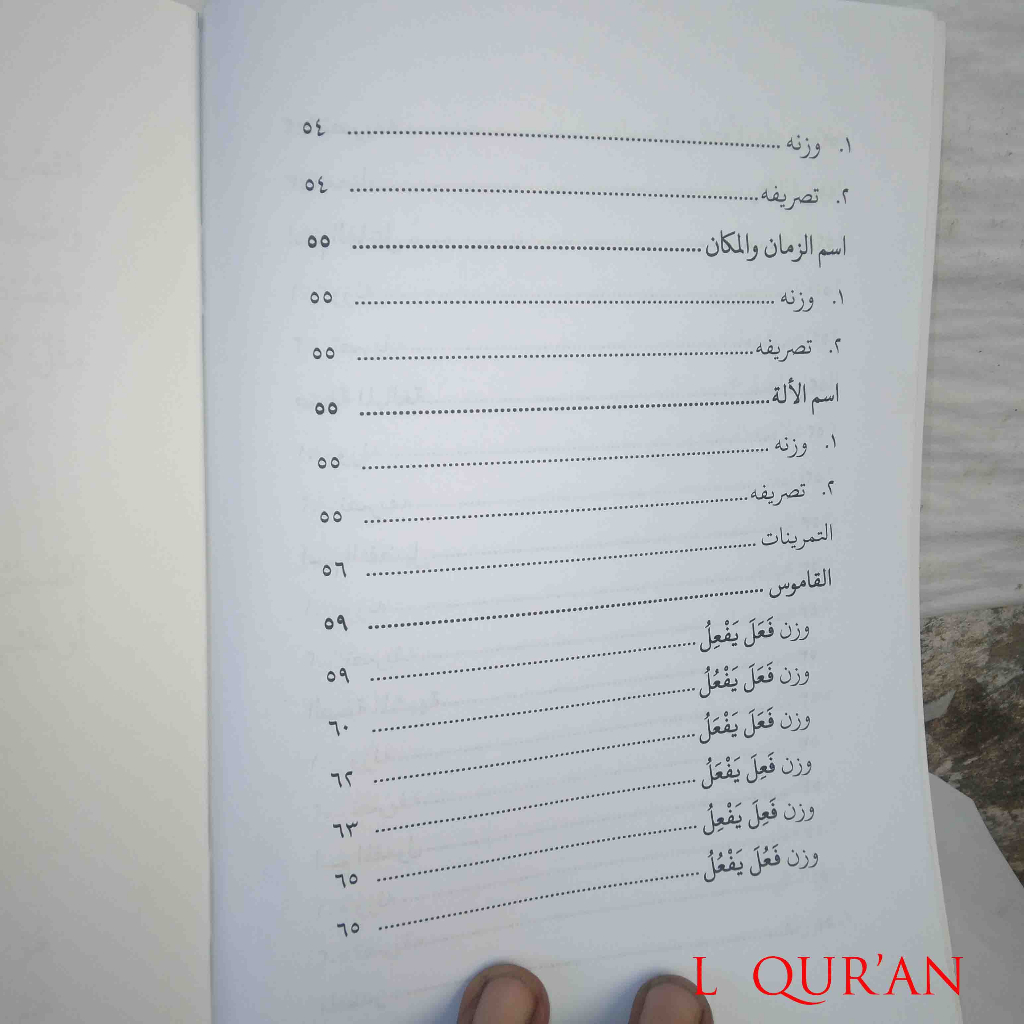 ١. وزنه ................ ٥٤
٢. تصريفه ................ ٥٤
اسم الزمان والمكان ................ ٥٥
١. وزنه ................ ٥٥
٢. تصريفه ................ ٥٥
اسم الألة ................ ٥٥
١. وزنه ................ ٥٥
٢. تصريفه ................ ٥٥
التمرينات ................ ٥٦
القاموس ................ ٥٩
وزن فَعَلَ يَفْعِلُ ................ ٥٩
وزن فَعَلَ يَفْعُلُ ................ ٦٠
وزن فَعَلَ يَفْعَلُ ................ ٦٢
وزن فَعِلَ يَفْعَلُ ................ ٦٣
وزن فَعِلَ يَفْعِلُ ................ ٦٥
وزن فَعُلَ يَفْعُلُ ................ ٦٥
L QUR'AN